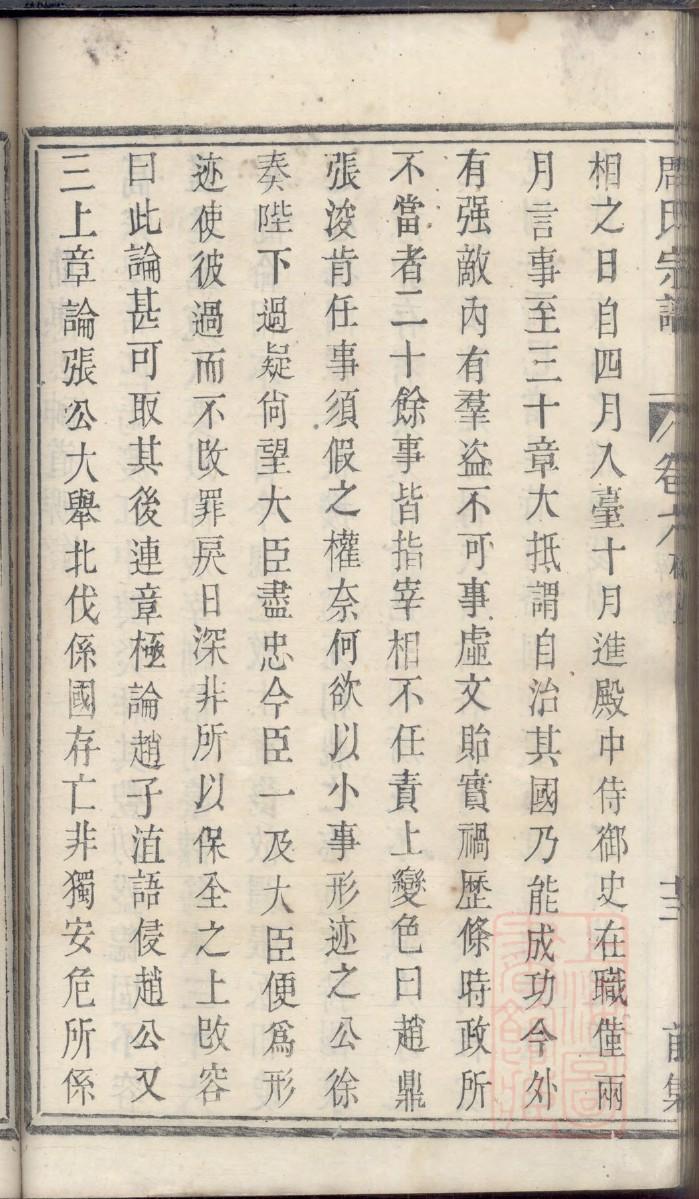 周氏宗譜 卷六 十二 前集
相之日自四月入臺十月進殿中侍御史在職僅兩
月言事至三十章大抵謂自治其國乃能成功今外
有强敵內有羣盜不可事虛文貽實禍歷條時政所
不當者二十餘事皆指宰相不任責上變色曰趙鼎
張浚肯任事須假之權奈何欲以小事形迹之公徐
奏陛下過疑尙望大臣盡忠今臣一及大臣便爲形
迹使彼過而不改罪戾日深非所以保全之上改容
曰此論甚可取其後連章極論趙子淔語侵趙公又
三上章論張公大舉北伐係國存亡非獨安危所係